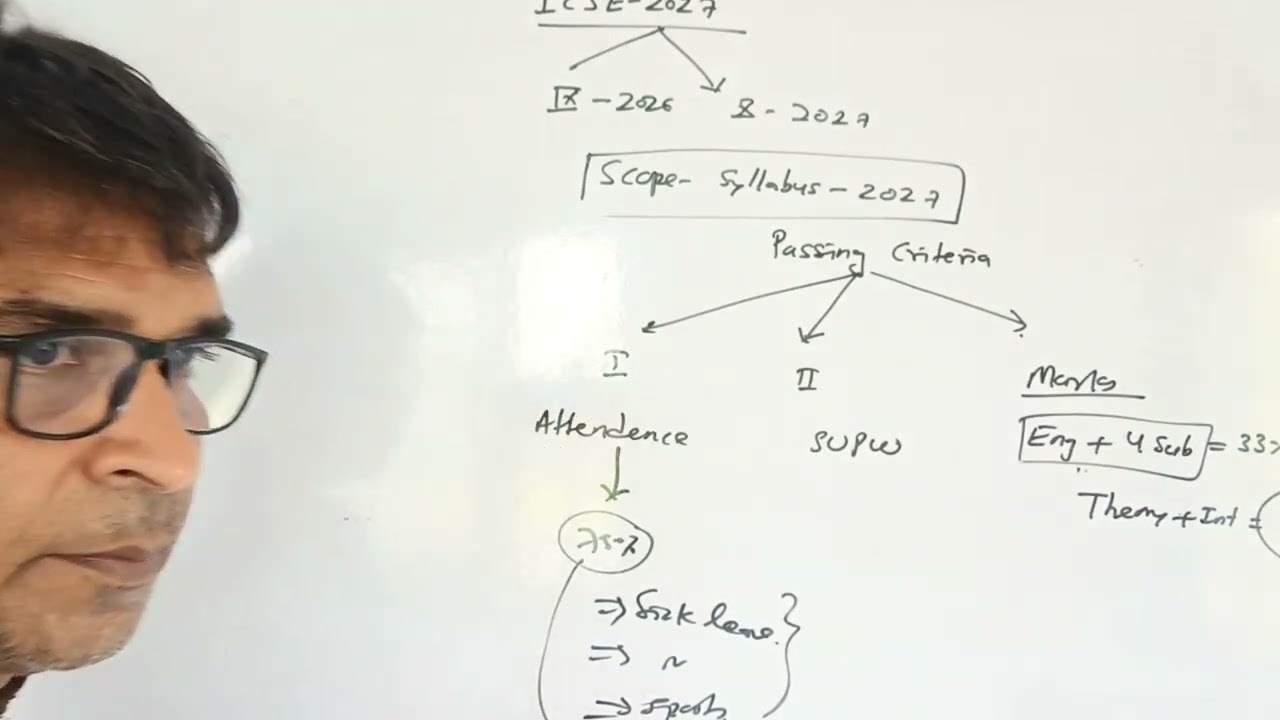 ICSE-2027
IX - 2026
X - 2027
Scope- Syllabus - 2027
Passing Criteria
I
II
Marks
Attendence
SUPW
Eng + 4 Sub = 33%
Theory + Int =
75%
⇒ Sick leave
⇒ ~
⇒ Sports